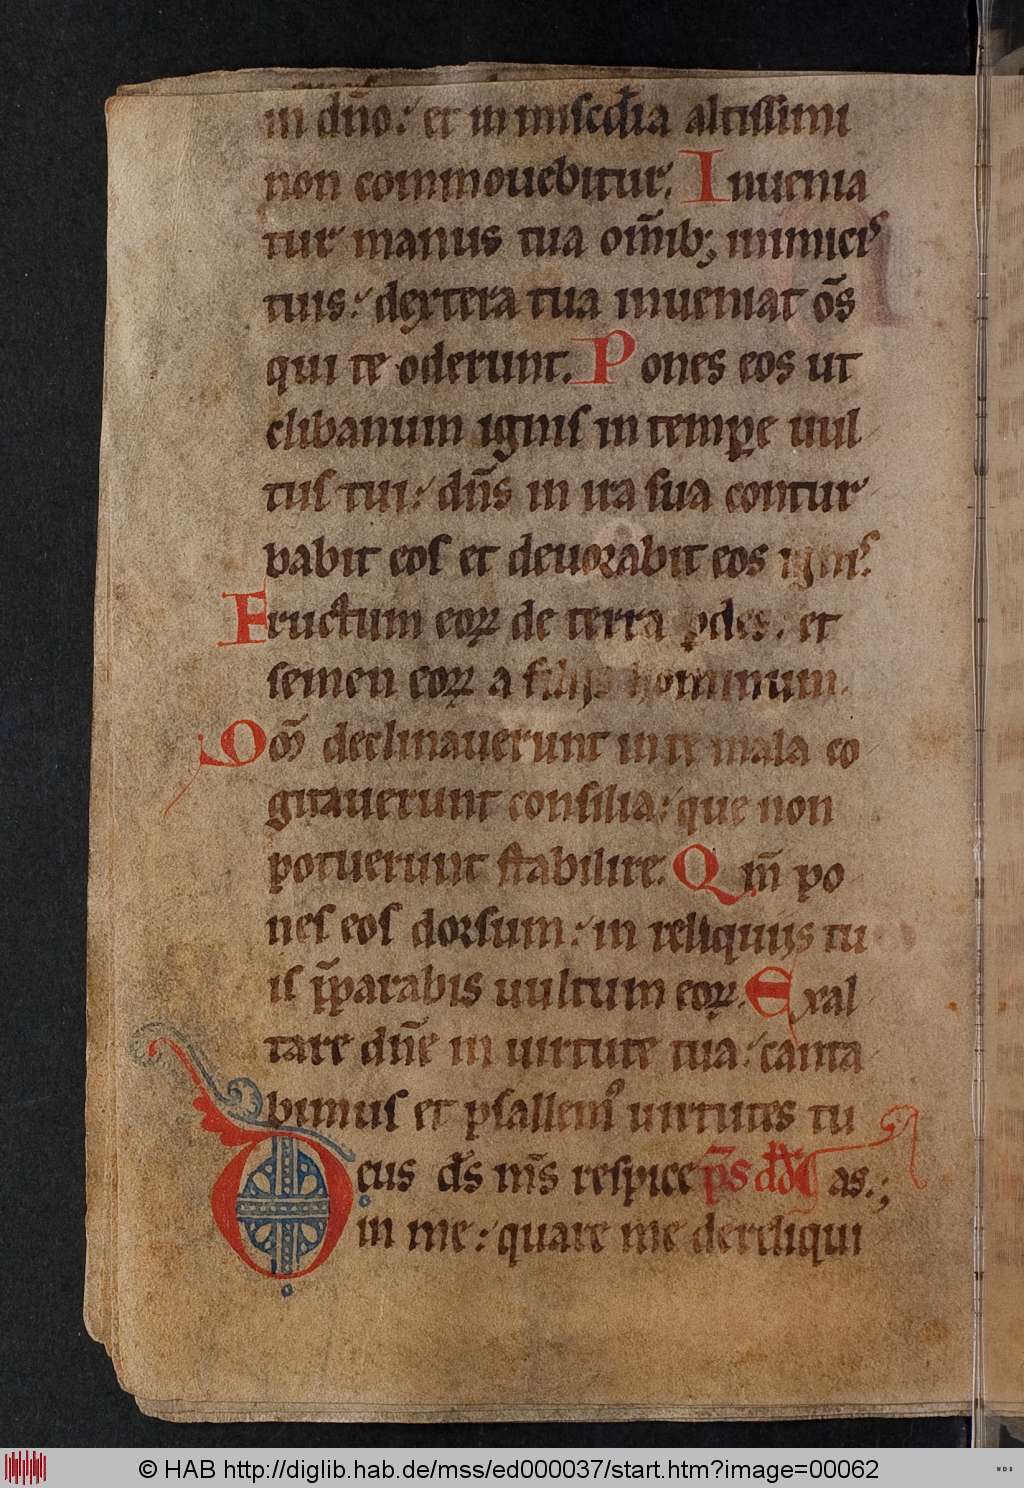 in dn̄o: et in misc̄dia altissimi
non commouebitur. Inuenia
tur manus tua om̄ib; inimicis
tuis: dextera tua inueniat om̄s
qui te oderunt. Pones eos ut
clibanum ignis in temp̱e uul
tus tui: dn̄s in ira sua contur
babit eos et deuorabit eos ignis.
Fructum eoꝝ de terra ꝑdes. et
semen eoꝝ a filiis hominum.
Qm̄ declinauerunt in te mala co
gitauerunt consilia: que non
potuerunt stabilire. Qm̄ po
nes eos dorsum: in reliquiis tu
is p̄parabis uultum eoꝝ. Exal
tare dn̄e in uirtute tua: canta
bimus et psallemꝰ uirtutes tu
Deus ds̄ ms̄ respice ps̄ dd̄ as.;
in me: quare me dereliqui
© HAB http://diglib.hab.de/mss/ed000037/start.htm?image=00062